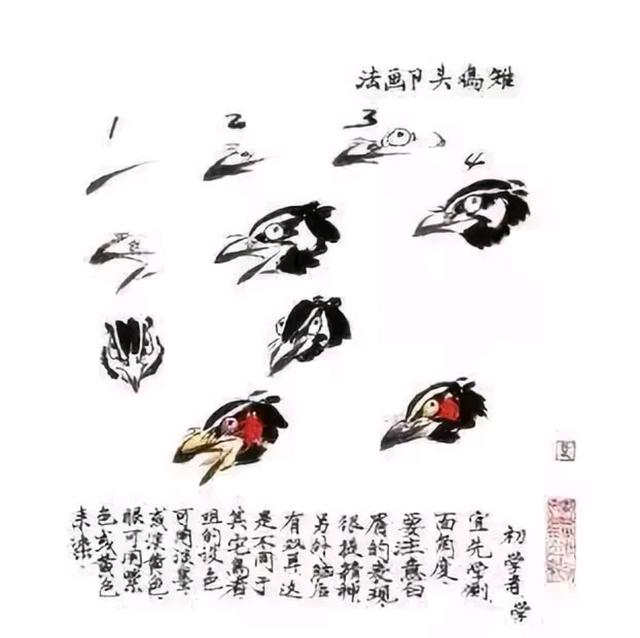 雉鸡头的画法
1
2
3
4
初学者,学
宜先学侧
面角度
要注意白
眉的表现
很提精神
另外脑后
有双耳这
是不同于
其它鸟者
咀的设色
可用淡墨
或淡黄色.
眼可用紫
色或黄色
来染.